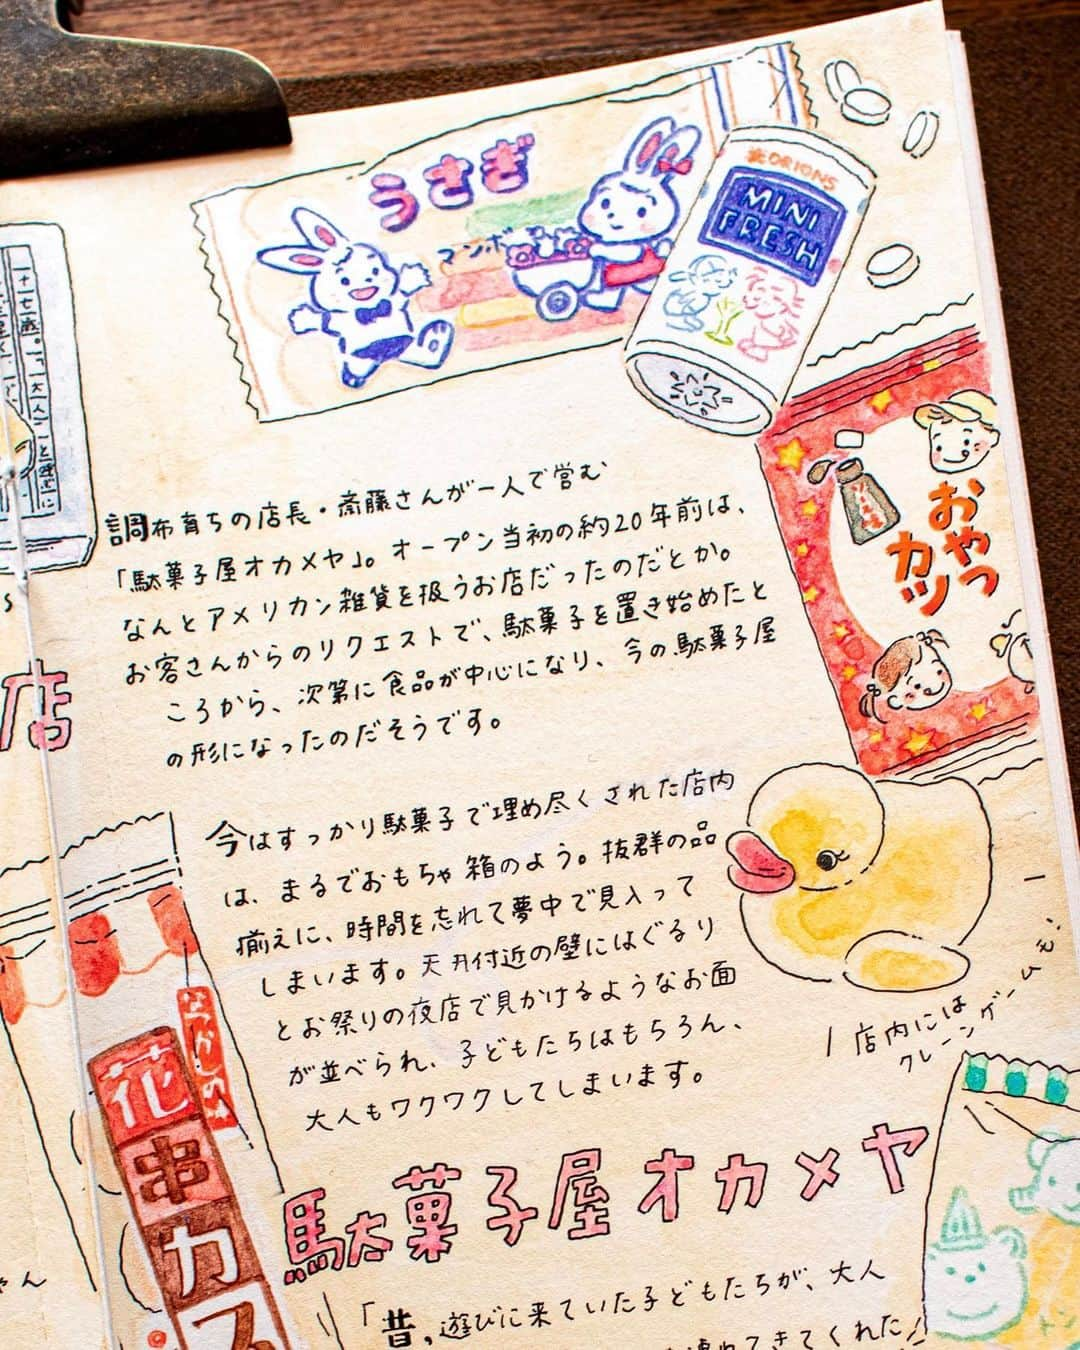 うさぎ
マンボ
ORIONS
MINI
FRESH
おやつ
カツ
調布育ちの店長・斎藤さんが一人で営む
「駄菓子屋オカメヤ」。オープン当初の約20年前は、
なんとアメリカン雑貨を扱うお店だったのだとか。
お客さんからのリクエストで、駄菓子を置き始めたと
ころから、次第に食品が中心になり、今の駄菓子屋
の形になったのだそうです。
店
今はすっかり駄菓子で埋め尽くされた店内
は、まるでおもちゃ箱のよう。抜群の品
揃えに、時間を忘れて夢中で見入って
しまいます。天井付近の壁にはぐるり
とお祭りの夜店で見かけるようなお面
が並べられ、子どもたちはもちろん、
大人もワクワクしてしまいます。
店内には
クレーンゲームも
花
串
カ
ス
駄菓子屋オカメヤ
「昔、遊びに来ていた子どもたちが、大人
連れてきてくれた